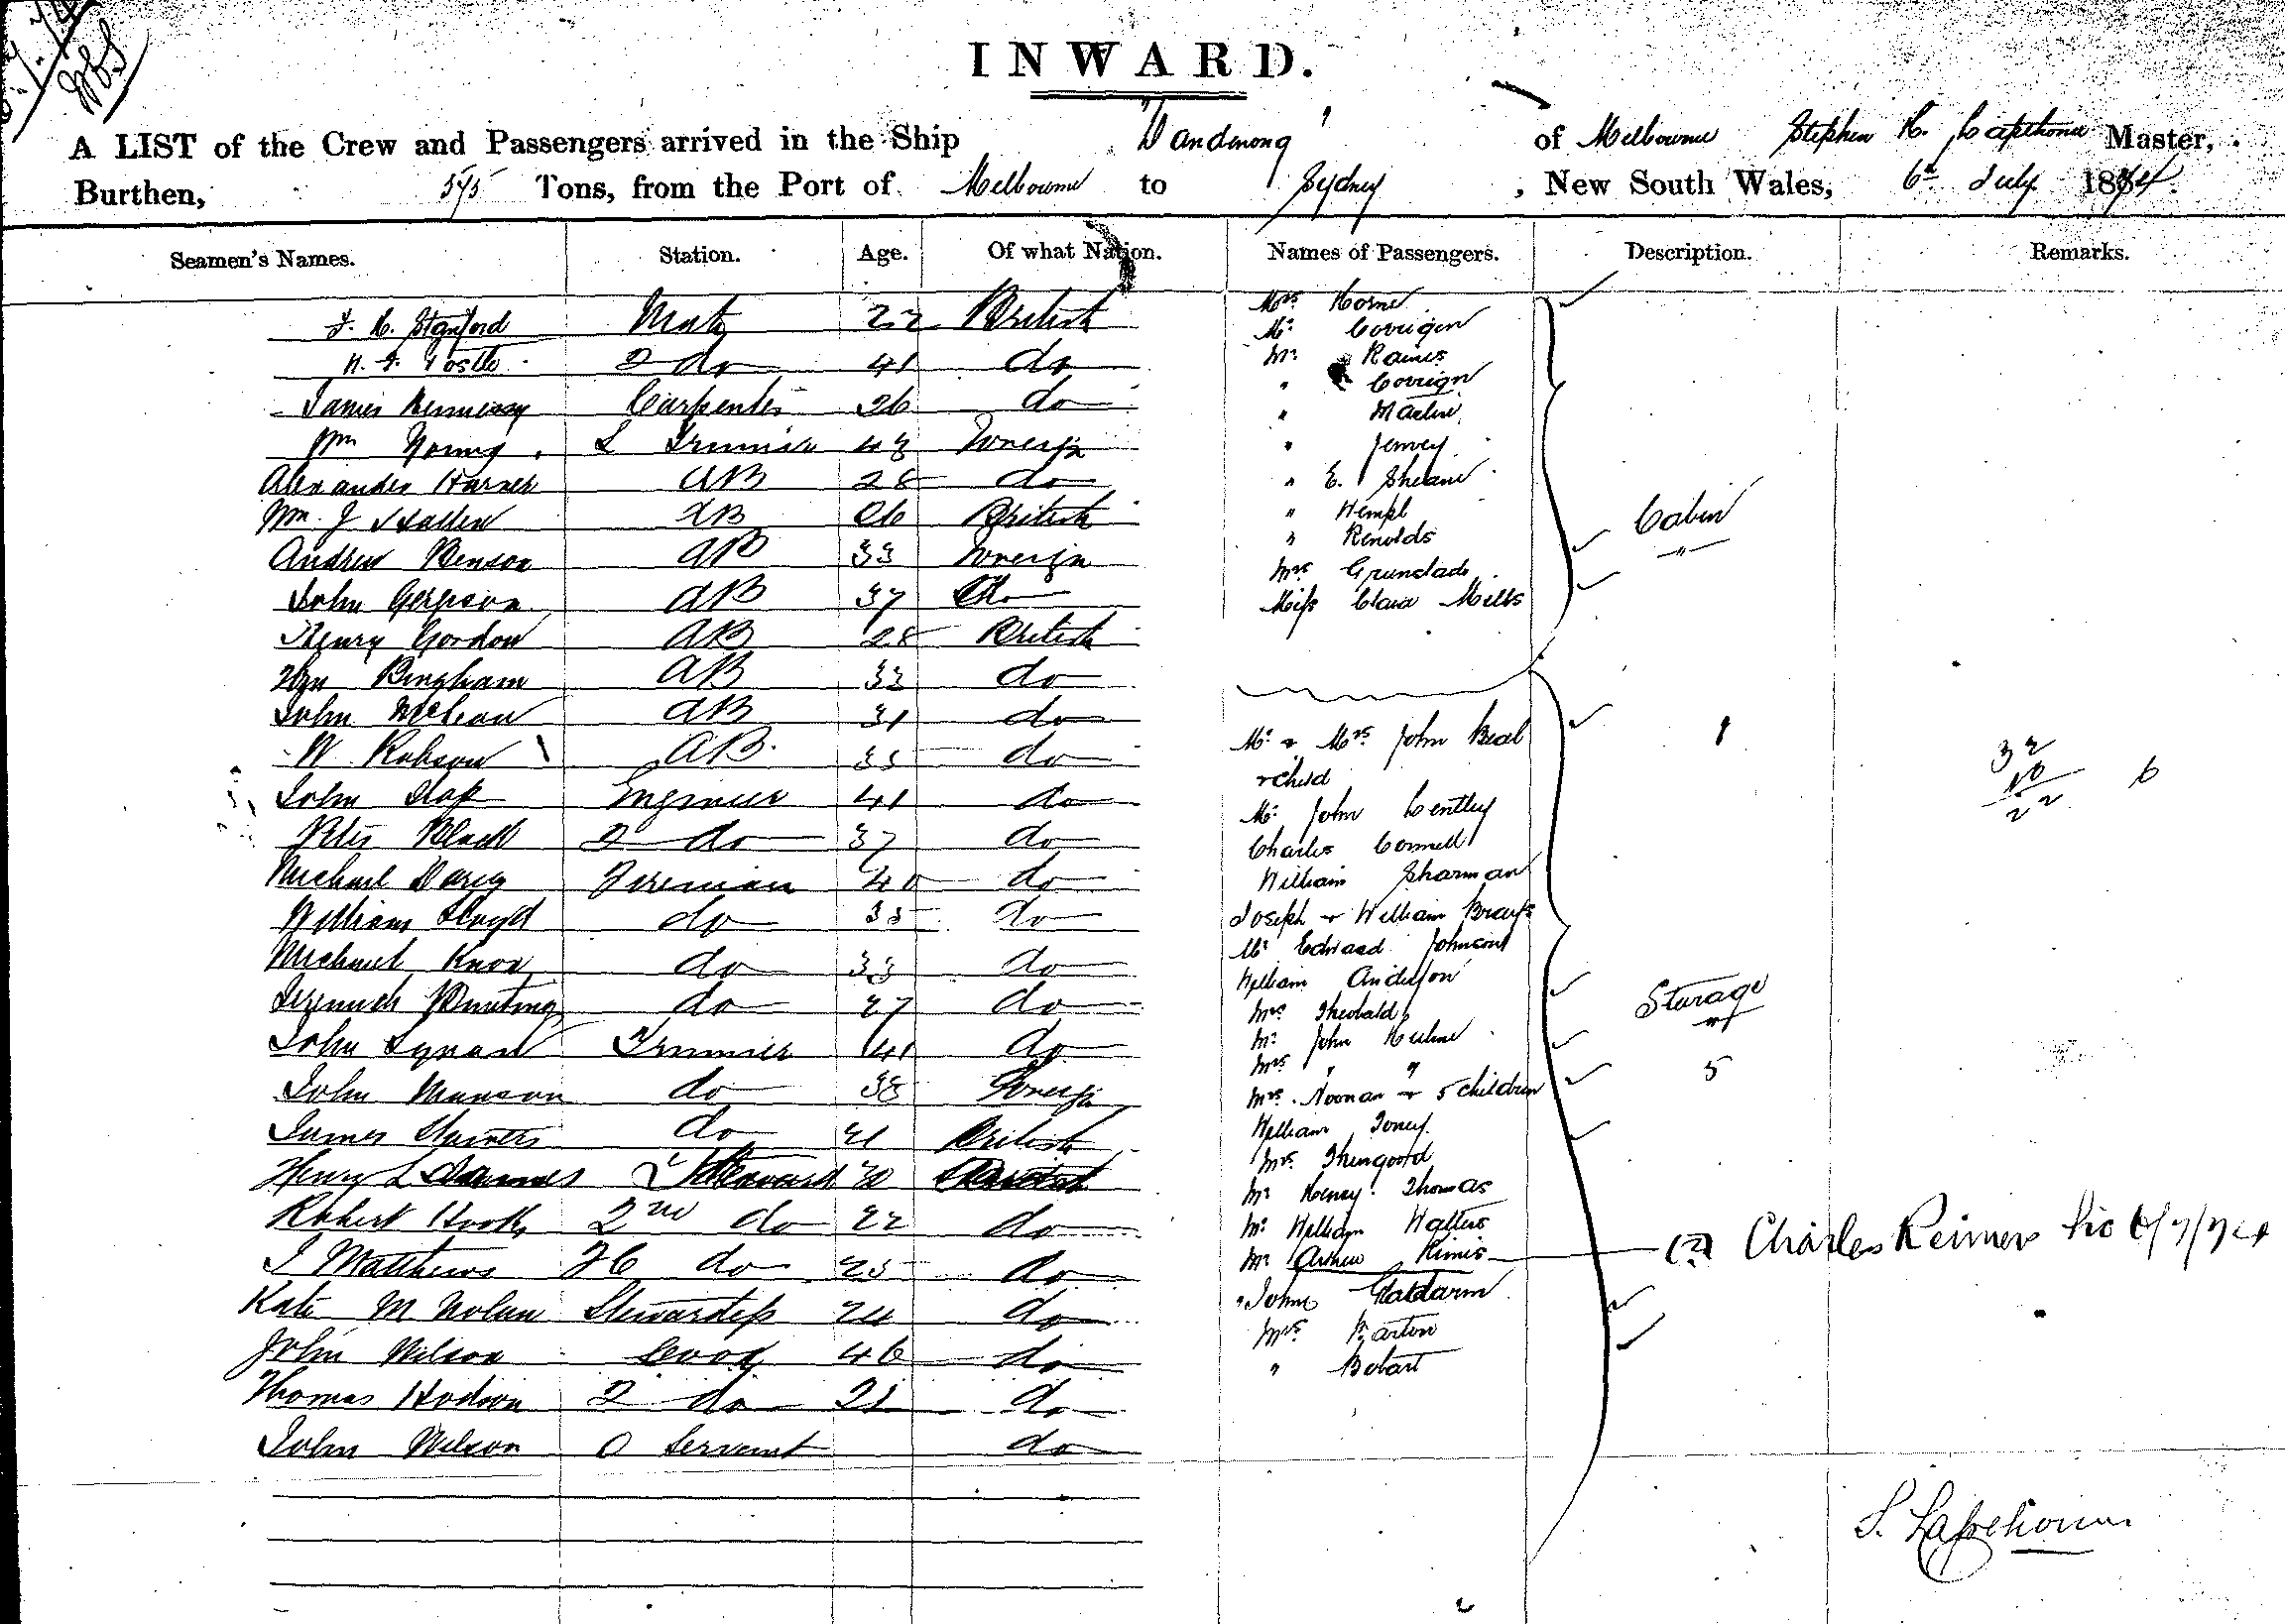 INWARD.
A LIST of the Crew and Passengers arrived in the Ship "Dandenong" of Melbourne Stephen K. Capethorne Master,
Burthen, 575 Tons, from the Port of Melbourne to Sydney, New South Wales, 6th July 1874.
Seamen's Names. Station. Age. Of what Nation. Names of Passengers. Description. Remarks.
Mate 22 British
2 do 41 do
James Hennessy Carpenter 26 do
Wm Young L Trimmer 43 Foreign
Alexander Harner AB 28 do
Wm J AB 26 British
Andrew Benson AB 33 Foreign
John AB 37 do
Henry Gordon AB 28 British
Bingham AB 33 do
John McLean AB 31 do
W Robson AB. 35 do
John Engineer 41 do
Peter Black 2 do 37 do
Michael Darcy Fireman 40 do
William Lloyd do 35 do
Michael Knox do 33 do
Jeremiah Bunting do 27 do
John Lynan Trimmer 41 do
John Munson do 38 Foreign
James do 21 British
Henry L Steward 30 British
Robert 2nd do 22 do
J Matthews do 25 do
Kate M Nolan Stewardess 24 do
John Wilson Cook 46 do
Thomas Hodson 2 do 21 do
John Wilson O Servant do
Mrs Horne
Mr Corrigan
Mr Raines
" Corrign
" Martin
" Jenvey
" E. Sheane
" Hempl
" Renolds
Mrs
Miss Clara Mills
Cabin
"
Mr & Mrs John Beal
& Child
1
Mr John Bentley
Charles Connell
William Sharman
Joseph & William
Mr Edward Johnson
William Anderson
Mrs Theobald
Mr John Hulme
Mrs " "
Mrs. Noonan & 5 children
William
Mrs
Mr Henry Thomas
Mr William Walters
Mr Arthur Rimis (?) Charles Reimers Pic 6/7/74
" John
Mrs Barton
" Bobart
Steerage
"
5
32
10
22
6
S. Lapthorne